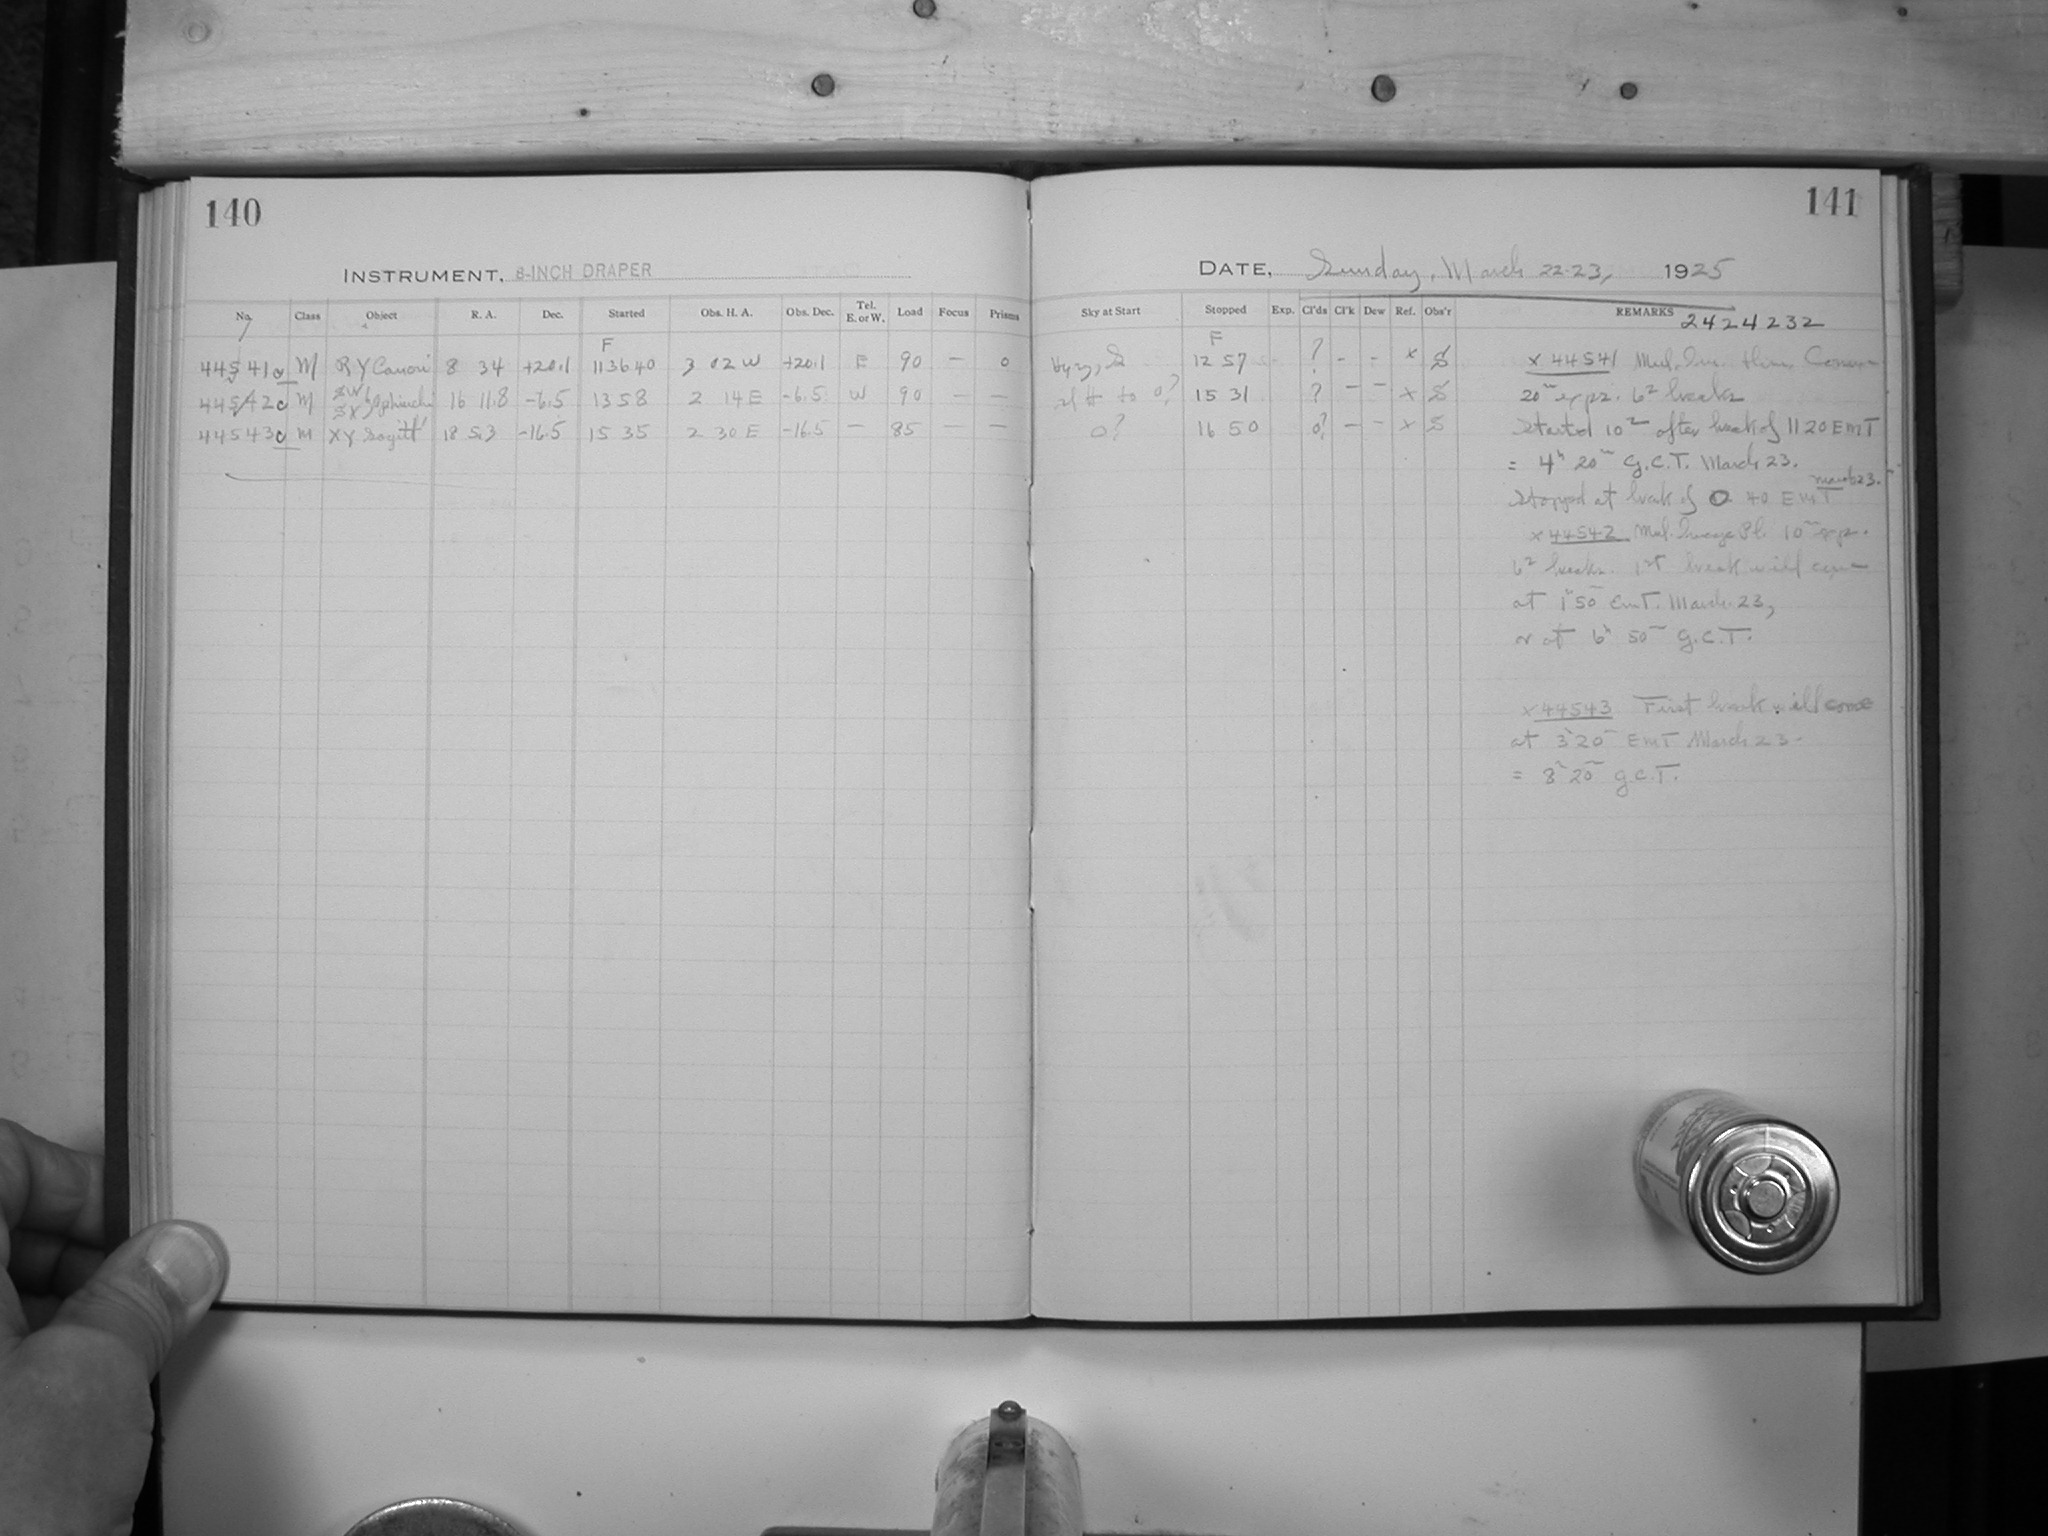 140
141
INSTRUMENT, 8-INCH DRAPER
DATE, Sunday, March 22-23, 1925
No. Class Object R. A. Dec. Started Obs. H. A. Obs. Dec. Tel. E. or W. Load Focus Prisms Sky at Start Stopped Exp. Cl'ds Cl'k Dew Ref. Obs'r REMARKS 2424232
F F
44541 M RY Cancri 8 34 +20.1 113640 3 02 W +20.1 E 90 — 0 12 57 ? - - x S
44542c M SW SX Ophiuchi 16 11.8 -6.5 1358 2 14 E -6.5 W 90 — — to 0? 15 31 ? — — x S
44543c M XY Sagitt 18 53 -16.5 15 35 2 30 E -16.5 — 85 — — 0? 16 50 0? — — x S
x 44541 Mul.
20m exps. breaks
Started after break of 11 20 EMT
= 4h 20m G.C.T. March 23.
Stopped at break of 0 40 EMT March 23.
x 44542 Mul. Image Pl. 10m exp.
breaks. 1st break will come
at 1h 50m EMT. March 23,
or at 6h 50m G.C.T.
x 44543 First break will come
at 3h 20m EMT March 23-
= 8h 20m G.C.T.